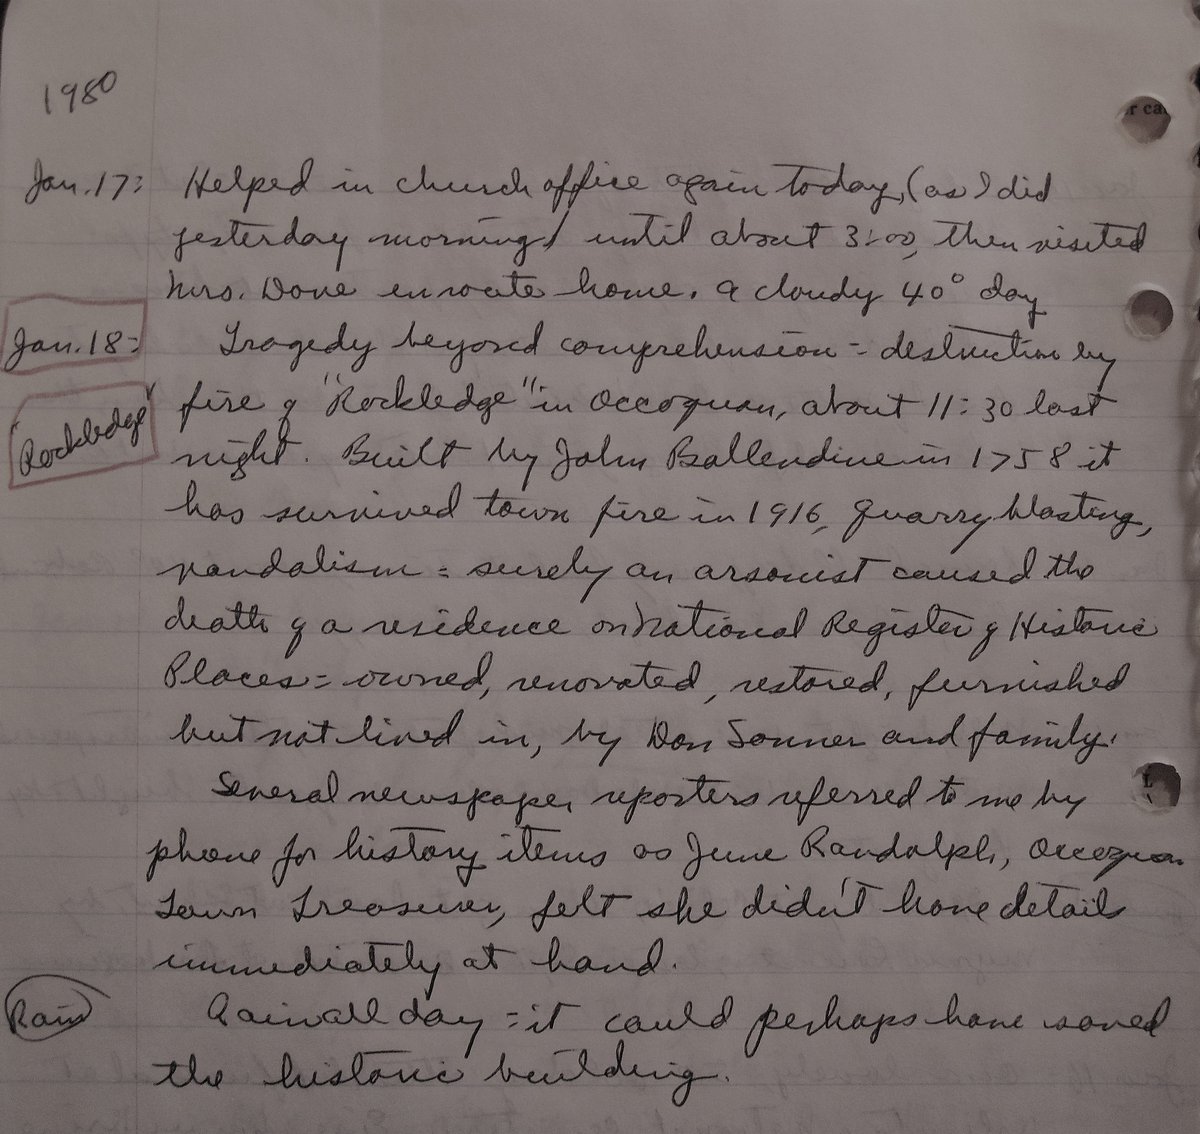 1980
Jan. 17: Helped in church office again today, (as I did
yesterday morning) until about 3:00, then visited
Mrs. Dove enroute home. A cloudy 40° day
Jan. 18: Tragedy beyond comprehension = destruction by
Rockledge fire of "Rockledge" in Occoquan, about 11:30 last
night. Built by John Ballendine in 1758 it
has survived town fire in 1916, quarry blasting,
vandalism = surely an arsonist caused the
death of a residence on National Register of Historic
Places = owned, renovated, restored, furnished
but not lived in, by Don Sonner and family.
Several newspaper reporters referred to me by
phone for history items as June Randolph, Occoquan
Town Treasurer, felt she didn't have details
immediately at hand.
Rain Rain all day = it could perhaps have saved
the historic building.
r ca
L